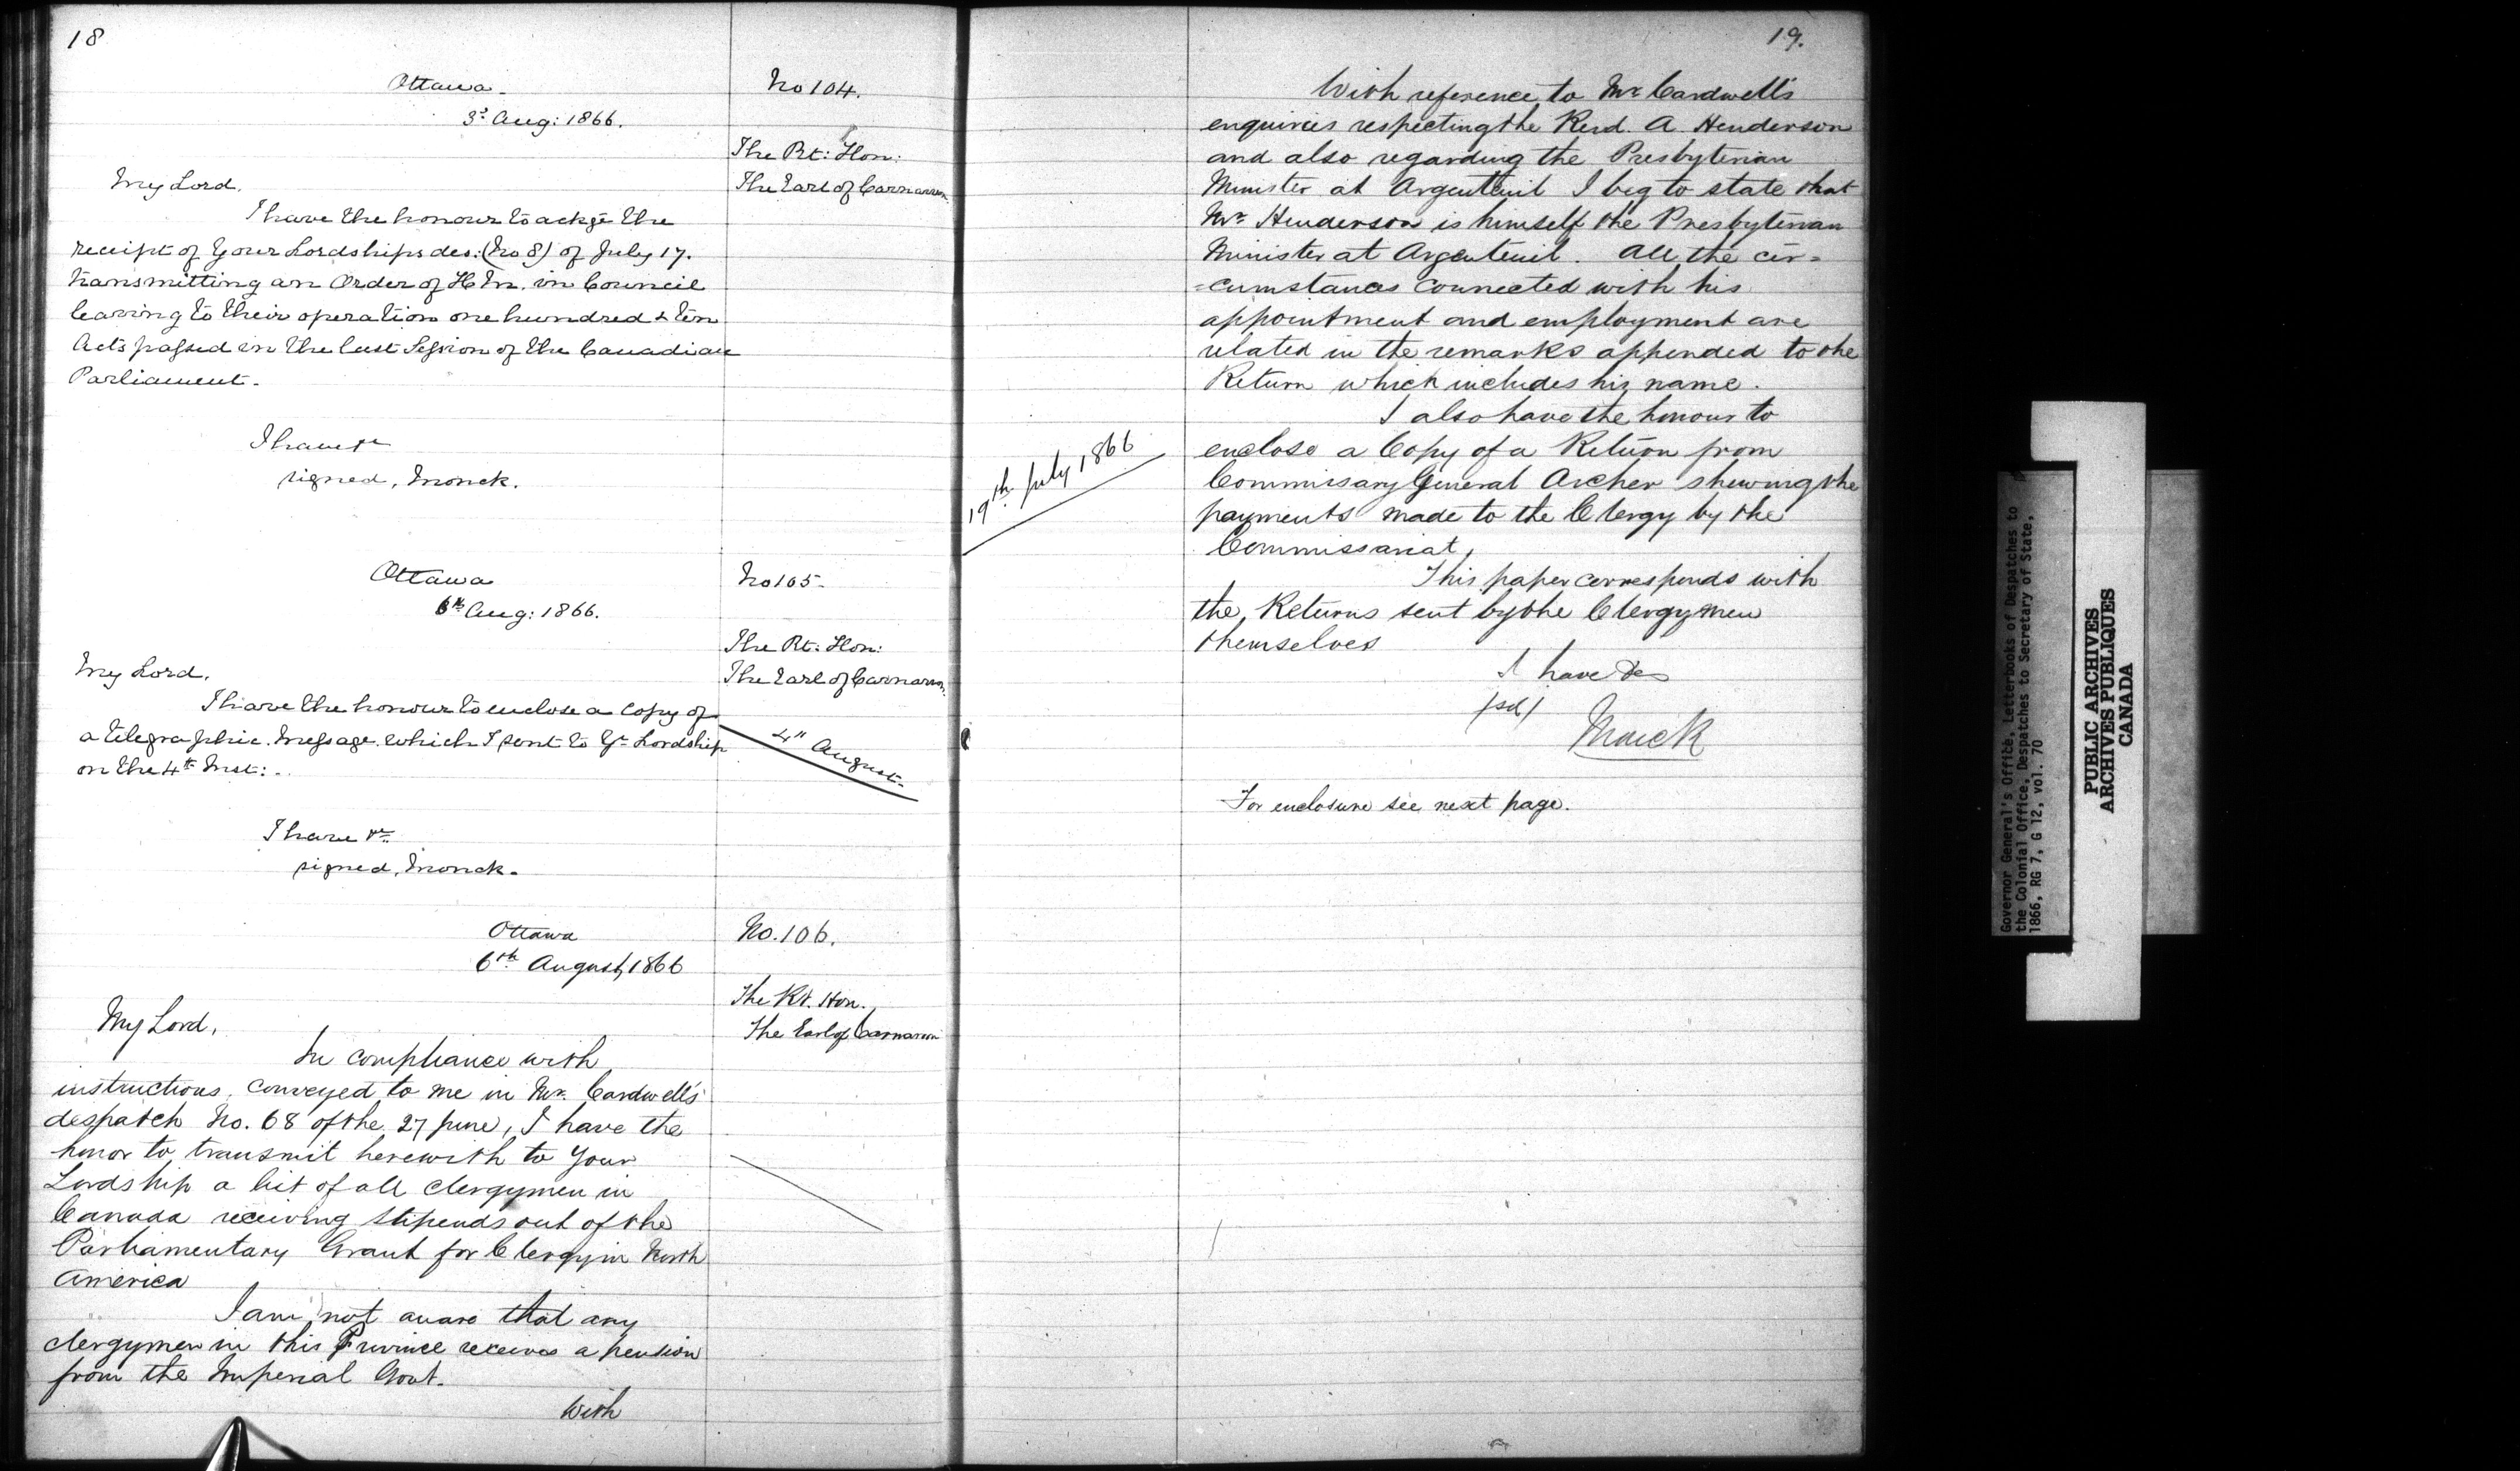 18
Ottawa.
3d Aug: 1866.
No 104.
The Rt: Hon:
The Earl of Carnarvon
My Lord.
I have the honour to ackge the
receipt of Your Lordships des: (No 8) of July 17.
transmitting an Order of H M. in Council
leaving to their operation one hundred & ten
Acts passed in the last Session of the Canadian
Parliament.
I have &c
signed, Monck.
Ottawa
6th Aug: 1866.
No 105.
The Rt: Hon:
The Earl of Carnarvon.
My Lord,
I have the honour to enclose a copy of
a telegraphic message which I sent to Yr Lordship
on the 4th Inst:
4th August.
I have &c
signed, Monck.
Ottawa
6th August, 1866
No. 106.
The Rt. Hon.
The Earl of Carnarvon
My Lord,
In compliance with
instructions conveyed to me in Mr. Cardwell's
despatch No. 68 of the 27 June, I have the
honor to transmit herewith to Your
Lordship a list of all clergymen in
Canada receiving stipends out of the
Parliamentary Grant for Clergy in North
America
I am not aware that any
clergymen in this Province receives a pension
from the Imperial Govt.
With
19.
With reference to Mr. Cardwell's
enquiries respecting the Revd. A Henderson
and also regarding the Presbyterian
Minister at Argenteuil I beg to state that
Mr. Henderson is himself the Presbyterian
Minister at Argenteuil. All the cir=
=cumstances connected with his
appointment and employment are
related in the remarks appended to the
Return which includes his name.
I also have the honour to
enclose a Copy of a Return from
Commissary General Archer shewing the
payments made to the Clergy by the
Commissariat,
19th July 1866
This paper corresponds with
the Returns sent by the Clergymen
themselves
I have &c
/sd/
Monck
For enclosure see next page.
Governor General's Office, Letterbooks of Despatches to
the Colonial Office, Despatches to Secretary of State,
1866, RG 7, G 12, vol. 70
PUBLIC ARCHIVES
ARCHIVES PUBLIQUES
CANADA